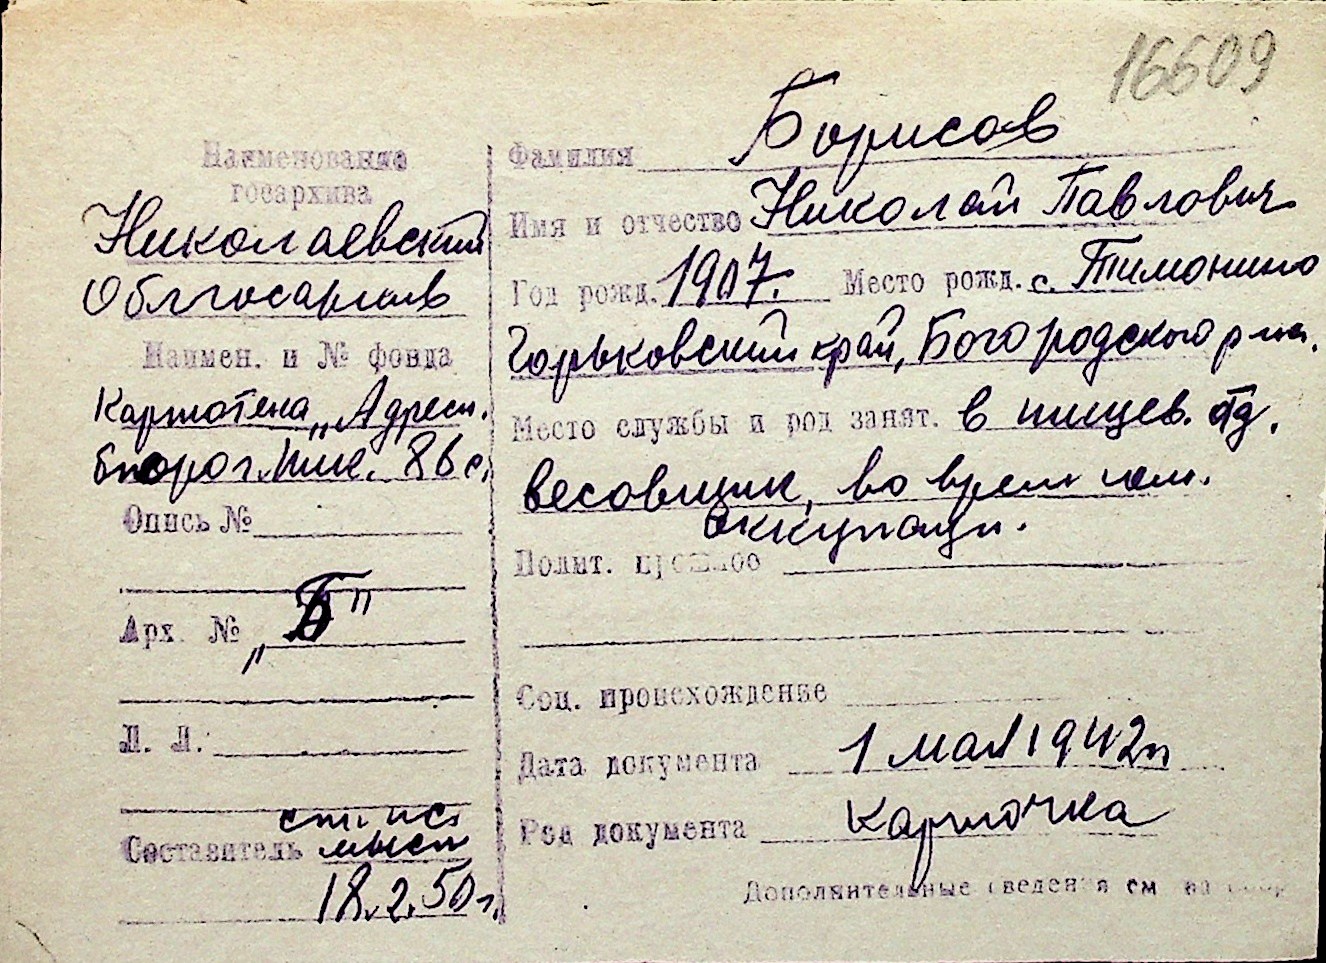 16609
Наименование
госархива
Николаевский
Облгосархив
Наимен. и № фонда
Картотека „Адресн.
бюро г. Ник. 86 с.
Опись №
Арх. № „Б"
Л. Л.
Составитель
18.2.50 г.
Фамилия Борисов
Имя и отчество Николай Павлович
Год рожд. 1907. Место рожд. с. Тимонино
Горьковский край, Богородского р-на.
Место службы и род занят. в пищев. отд.
весовщик, во время нем.
оккупации.
Полит. прошлое
Соц. происхождение
Дата документа 1 мая 1942 г.
Род документа карточка
Дополнительные сведения см на обор